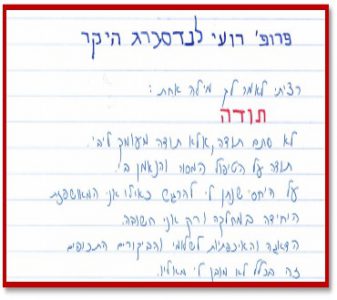 פרופ' רועי לנדסברג היקר
רציתי לאמר לך מילה אחת:
תודה
לא סתם תודה, אלא תודה מעומק ליבי.
תודה על הטיפול המסור והנאמן בי.
על היחס שנתן לי להרגש כאילו אני המאושפזת
היחידה במחלקה ורק אני חשובה.
הדאגה והאיכפתיות לשלומי והביקורים התכופים
זה בכלל לא מובן לי מאליו.